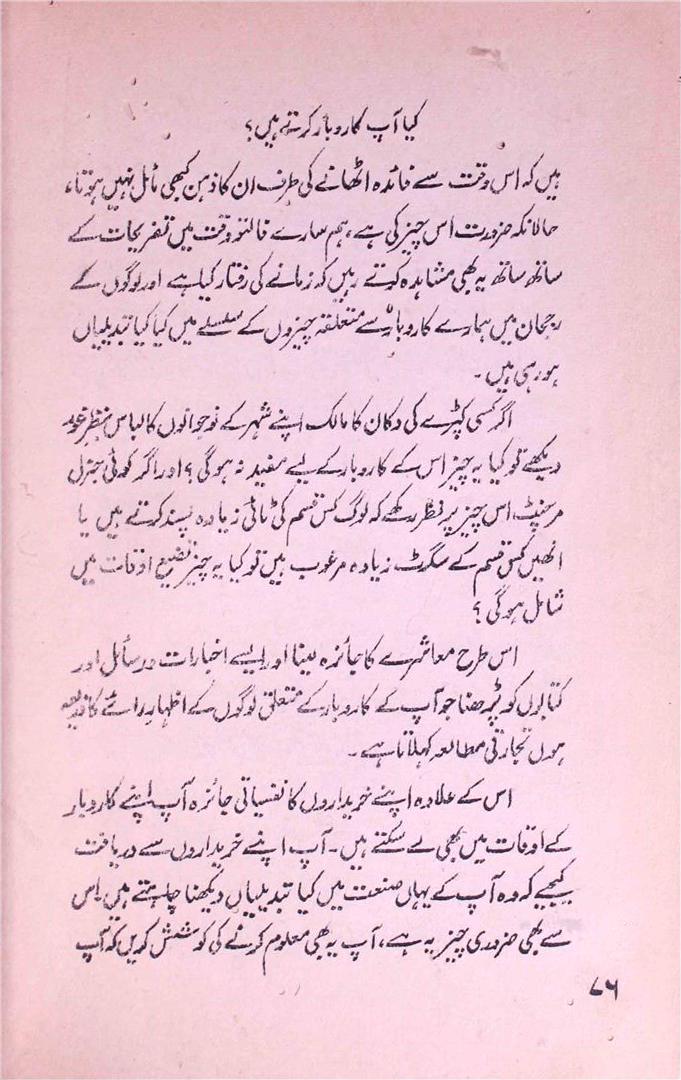 کیا آپ کاروبار کرتے ہیں؟
ہیں کہ اس وقت سے فائدہ اٹھانے کی طرف ان کا ذہن کبھی مائل نہیں ہوتا،
حالانکہ ضرورت اس چیز کی ہے، ہم سارے فالتو وقت میں تفریحات کے
ساتھ ساتھ یہ بھی مشاہدہ کرتے رہیں کہ زمانے کی رفتار کیا ہے اور لوگوں کے
رجحان میں ہمارے کاروبار سے متعلقہ چیزوں کے سلسلے میں کیا کیا تبدیلیاں
ہو رہی ہیں۔
اگر کسی کپڑے کی دکان کا مالک اپنے شہر کے نوجوانوں کا لباس بنظر غور
دیکھے تو کیا یہ چیز اس کے کاروبار کے لیے مفید نہ ہوگی؟ اور اگر کوئی جنرل
مرچنٹ اس چیز پر نظر رکھے کہ لوگ کس قسم کی ٹائی زیادہ پسند کرتے ہیں یا
انھیں کس قسم کے سگرٹ زیادہ مرغوب ہیں تو کیا یہ چیز تضیع اوقات میں
شامل ہوگی؟
اس طرح معاشرے کا جائزہ لینا اور ایسے اخبارات و رسائل اور
کتابوں کو پڑھنا جو آپ کے کاروبار کے متعلق لوگوں کے اظہار رائے کا ذریعہ
ہوں تجارتی مطالعہ کہلاتا ہے۔
اس کے علاوہ اپنے خریداروں کا نفسیاتی جائزہ آپ اپنے کاروبار
کے اوقات میں بھی لے سکتے ہیں۔ آپ اپنے خریداروں سے دریافت
کیجیے کہ وہ آپ کے یہاں صنعت میں کیا تبدیلیاں دیکھنا چاہتے ہیں۔ اس
سے بھی ضروری چیز یہ ہے، آپ یہ بھی معلوم کرنے کی کوشش کریں کہ آپ
۷۶